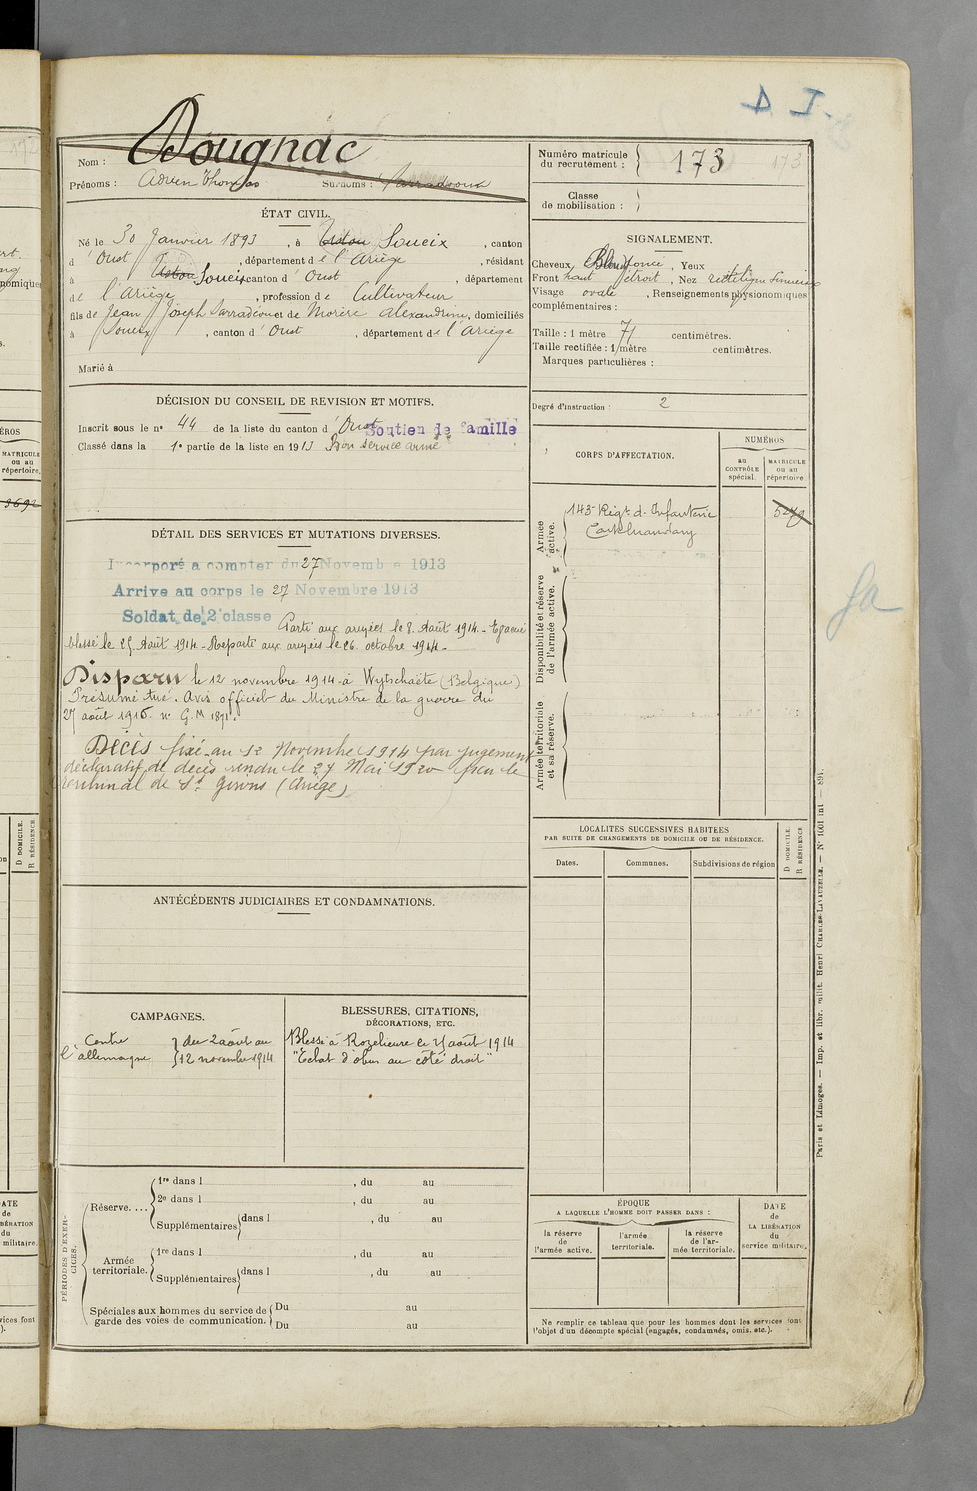 Nom : Dougnac
Prénoms : Adrien Thomas Surnoms : Sarradcouet
Numéro matricule du recrutement : 173 173
Classe de mobilisation :
ÉTAT CIVIL.
Né le 30 Janvier 1893, à Soueix, canton
d'Oust, département de l'Ariège, résidant
à Soueix canton d'Oust, département
de l'Ariège, profession de Cultivateur
fils de Jean Joseph Sarradcouet et de Morère Alexandrine, domiciliés
à Soueix, canton d'Oust, département de l'Ariège
Marié à
SIGNALEMENT.
Cheveux Blond foncé, Yeux
Front haut étroit, Nez rectiligne sinueux
Visage ovale, Renseignements physionomiques
complémentaires :
Taille : 1 mètre 71 centimètres.
Taille rectifiée : 1 mètre centimètres.
Marques particulières :
Degré d'instruction : 2
DÉCISION DU CONSEIL DE REVISION ET MOTIFS.
Inscrit sous le n° 44 de la liste du canton d'Oust Soutien de famille
Classé dans la 1e partie de la liste en 1913 Bon service armé
CORPS D'AFFECTATION.
NUMÉROS
au CONTRÔLE spécial.
MATRICULE ou au répertoire.
Armée active.
143e Régt d'Infanterie
Castelnaudary
Disponibilité et réserve de l'armée active.
Armée territoriale et sa réserve.
DÉTAIL DES SERVICES ET MUTATIONS DIVERSES.
Incorporé a compter du 27 Novembre 1913
Arrive au corps le 27 Novembre 1913
Soldat de 2e classe Parti aux armées le 8 Août 1914. - Evacué
blessé le 25 Août 1914 - Reparti aux armées le 26 octobre 1914 -
Disparu le 12 novembre 1914 à Wytschaëte (Belgique)
Présumé tué. Avis officiel du Ministre de la guerre du
27 août 1916. n° G.M 1871.
Décès fixé au 12 Novembre 1914 par jugement
déclaratif de décès rendu le 27 Mai 1920 par le
tribunal de St Girons (Ariège)
LOCALITES SUCCESSIVES HABITEES
PAR SUITE DE CHANGEMENTS DE DOMICILE OU DE RÉSIDENCE.
Dates. Communes. Subdivisions de région
D DOMICILE.
R RÉSIDENCE
ANTÉCÉDENTS JUDICIAIRES ET CONDAMNATIONS.
CAMPAGNES.
Contre l'allemagne } du 2 août au 12 novembre 1914
BLESSURES, CITATIONS,
DÉCORATIONS, ETC.
Blessé à Rozelieure le 25 août 1914
"Eclat d'obus au côté droit"
PÉRIODES D'EXERCICES.
Réserve....
1re dans l , du au
2e dans l , du au
Supplémentaires dans l , du au
Armée territoriale.
1re dans l , du au
Supplémentaires dans l , du au
Spéciales aux hommes du service de
garde des voies de communication.
Du au
Du au
ÉPOQUE
A LAQUELLE L'HOMME DOIT PASSER DANS :
la réserve de l'armée active.
l'armée territoriale.
la réserve de l'armée territoriale.
DATE de LA LIBÉRATION du service militaire.
Ne remplir ce tableau que pour les hommes dont les services font
l'objet d'un décompte spécial (engagés, condamnés, omis, etc.).
Paris et Limoges. — Imp. et libr. milit. Henri CHARLES-LAVAUZELLE. — N° 1601 int